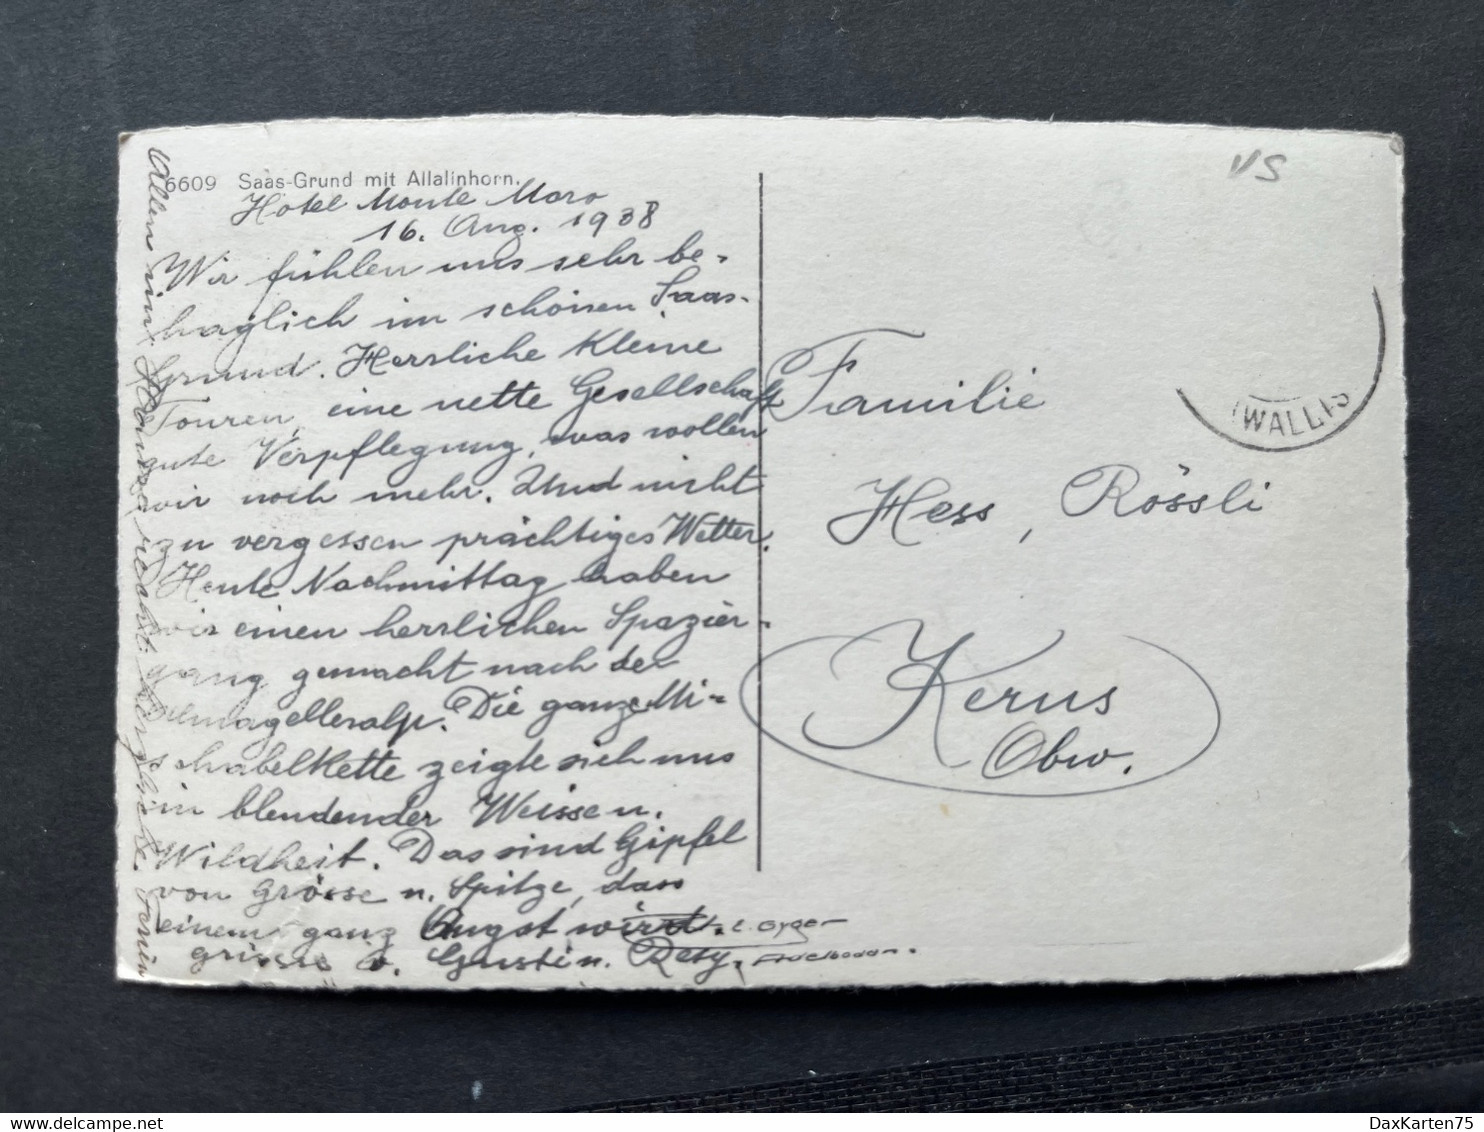 6609 Saas-Grund mit Allalinhorn.
Hotel Monte Moro
16. Aug. 1938
Wir fühlen uns sehr be-
haglich im schönen Saas-
Grund. Herrliche kleine
Touren, eine nette Gesellschaft
gute Verpflegung, was wollen
wir noch mehr. Und nicht
zu vergessen prächtiges Wetter.
Heute Nachmittag haben
wir einen herrlichen Spazier-
gang gemacht nach der
Almagelleralp. Die ganze Mi-
schabelkette zeigte sich uns
in blendender Weissen.
Wildheit. Das sind Gipfel
von Grösse u. Spitze, dass
einem ganz Angst wird.
Gusti u. Resy.
Allen im Hause recht herzliche
VS
(WALLIS
Familie
Hess, Rössli
Kerns
Obw.
E. Gyger
Adelboden.
DaxKarten75